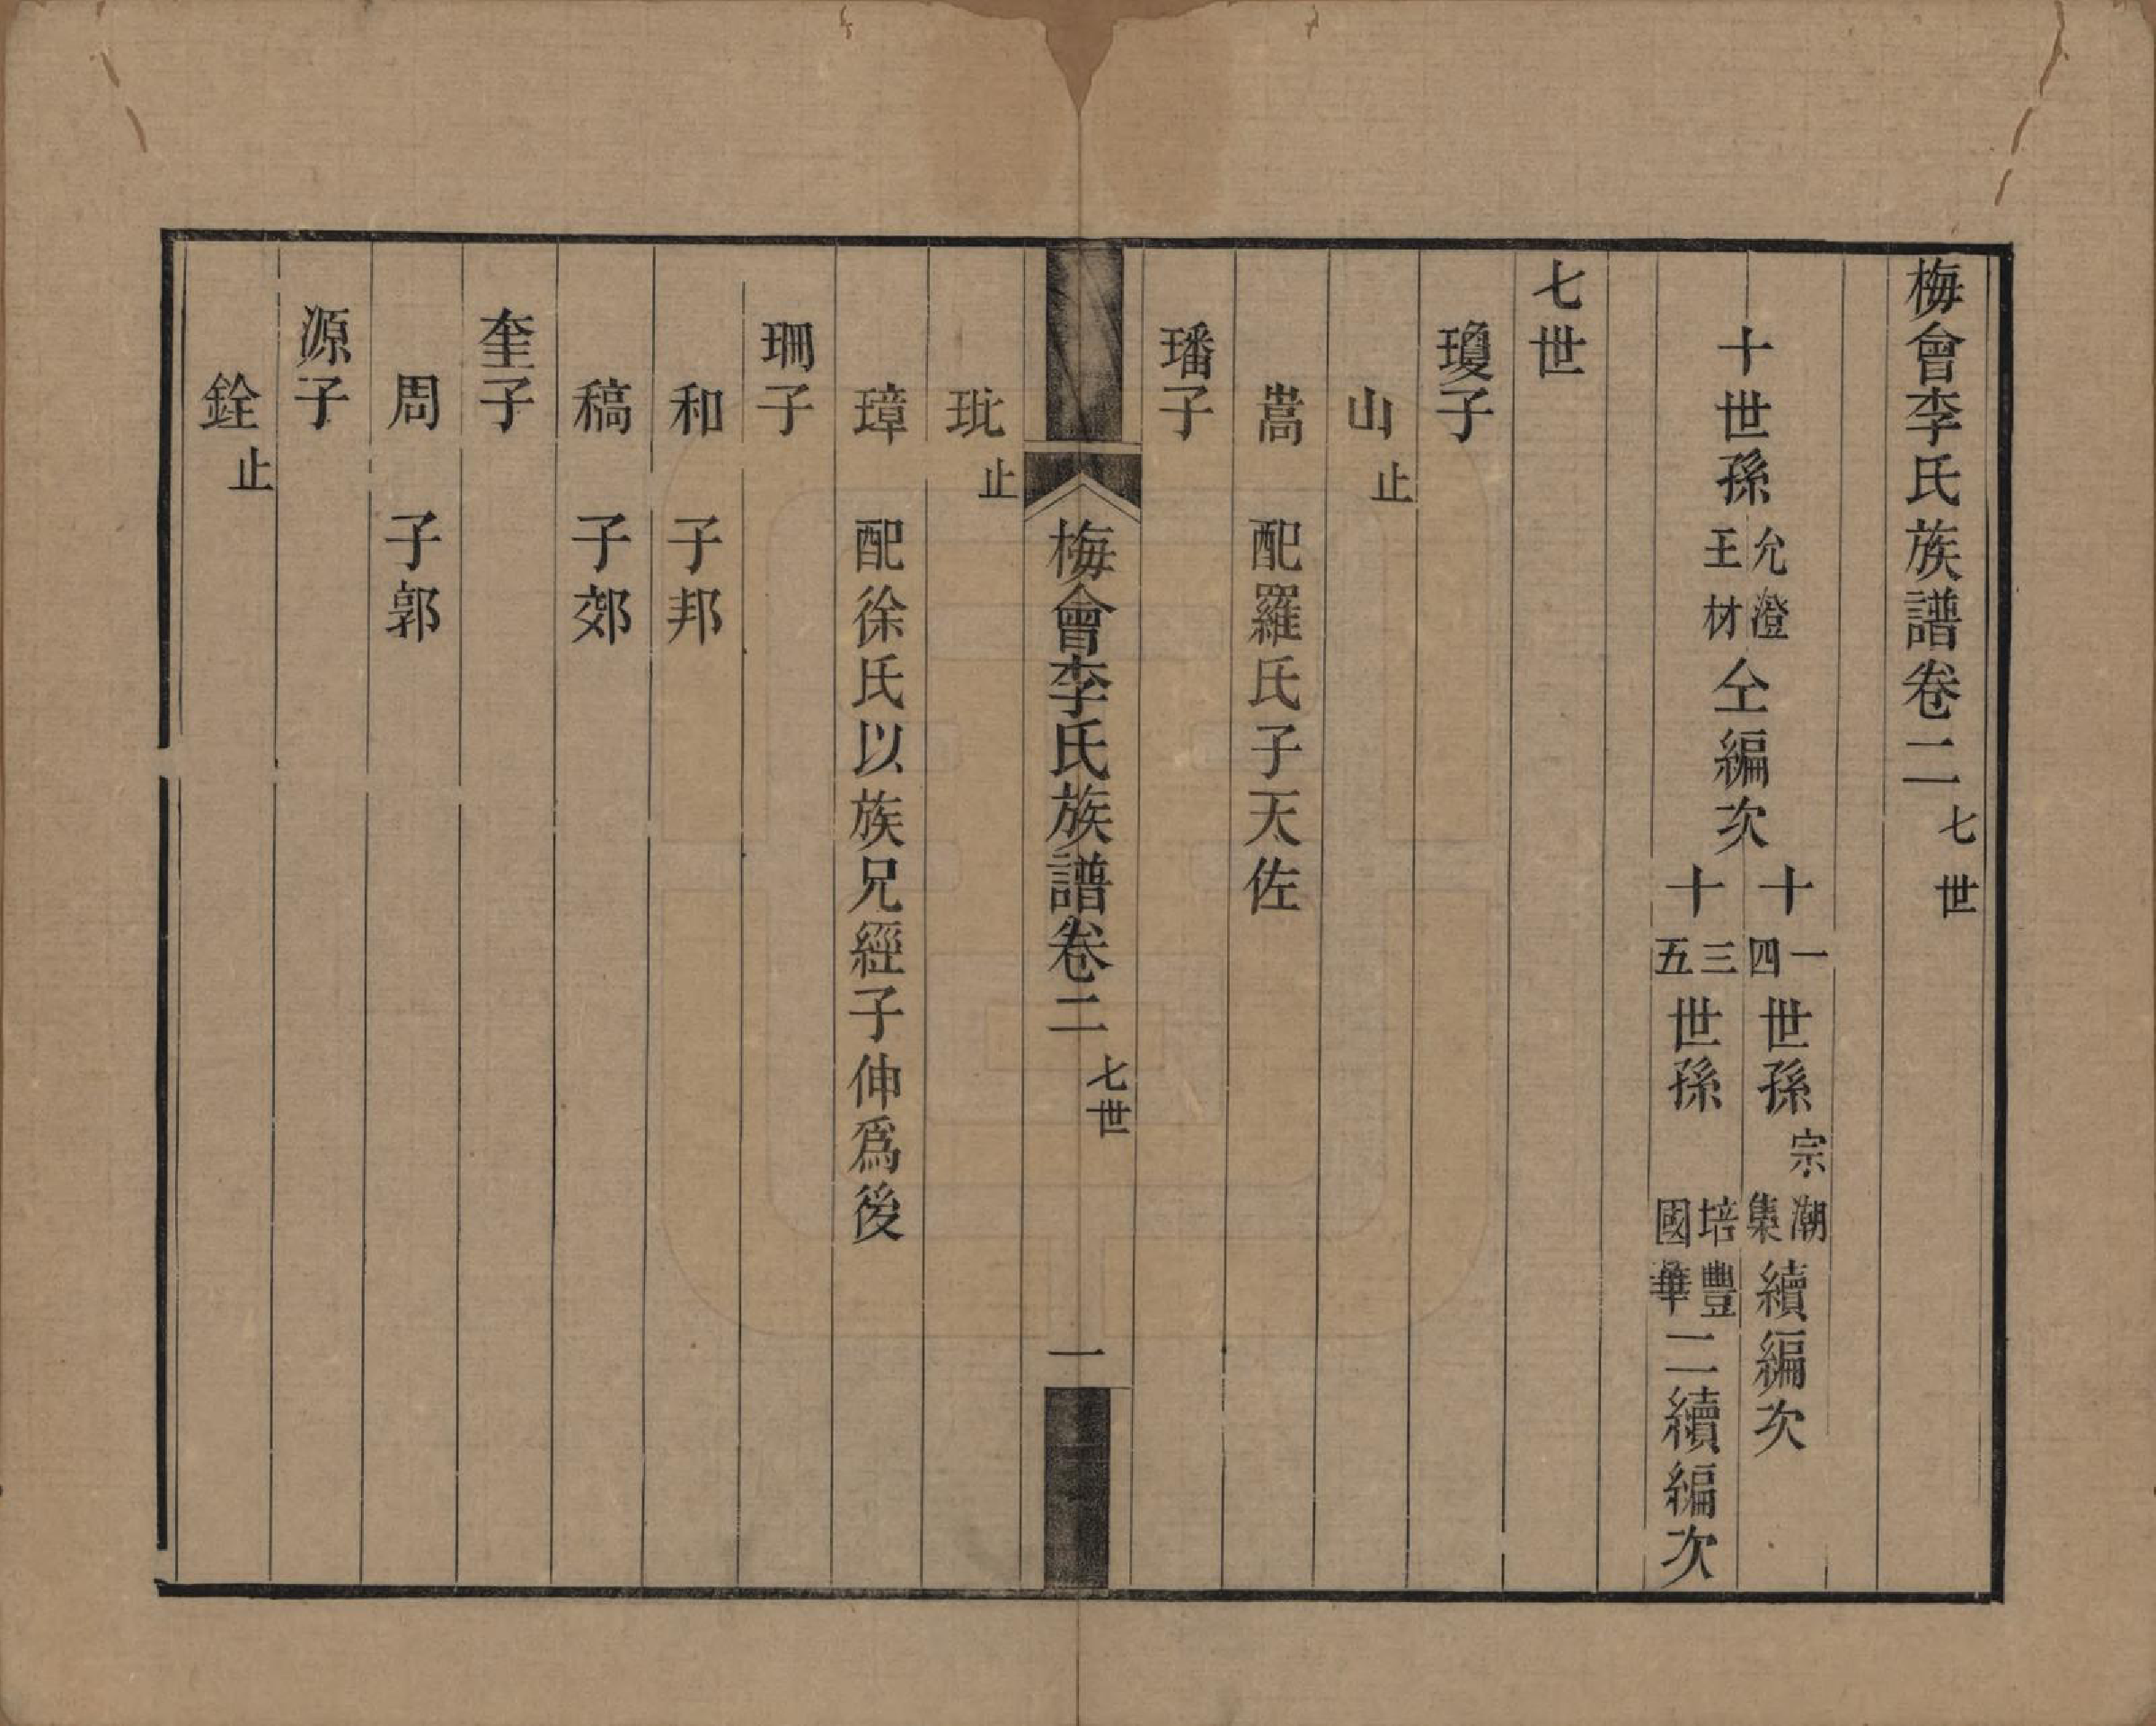 梅會李氏族譜卷二 七世
十世孫 允澄 王材 仝編次
十一四世孫 宗潮 集 續編次
十三五世孫 培豐 國華 二續編次
七世
瓊子
山 止
嵩 配羅氏子天佐
璠子
梅會李氏族譜卷二 七世 一
玭 止
璋 配徐氏以族兄經子伸爲後
珊子
和 子邦
稿 子郊
奎子
周 子郭
源子
銓 止